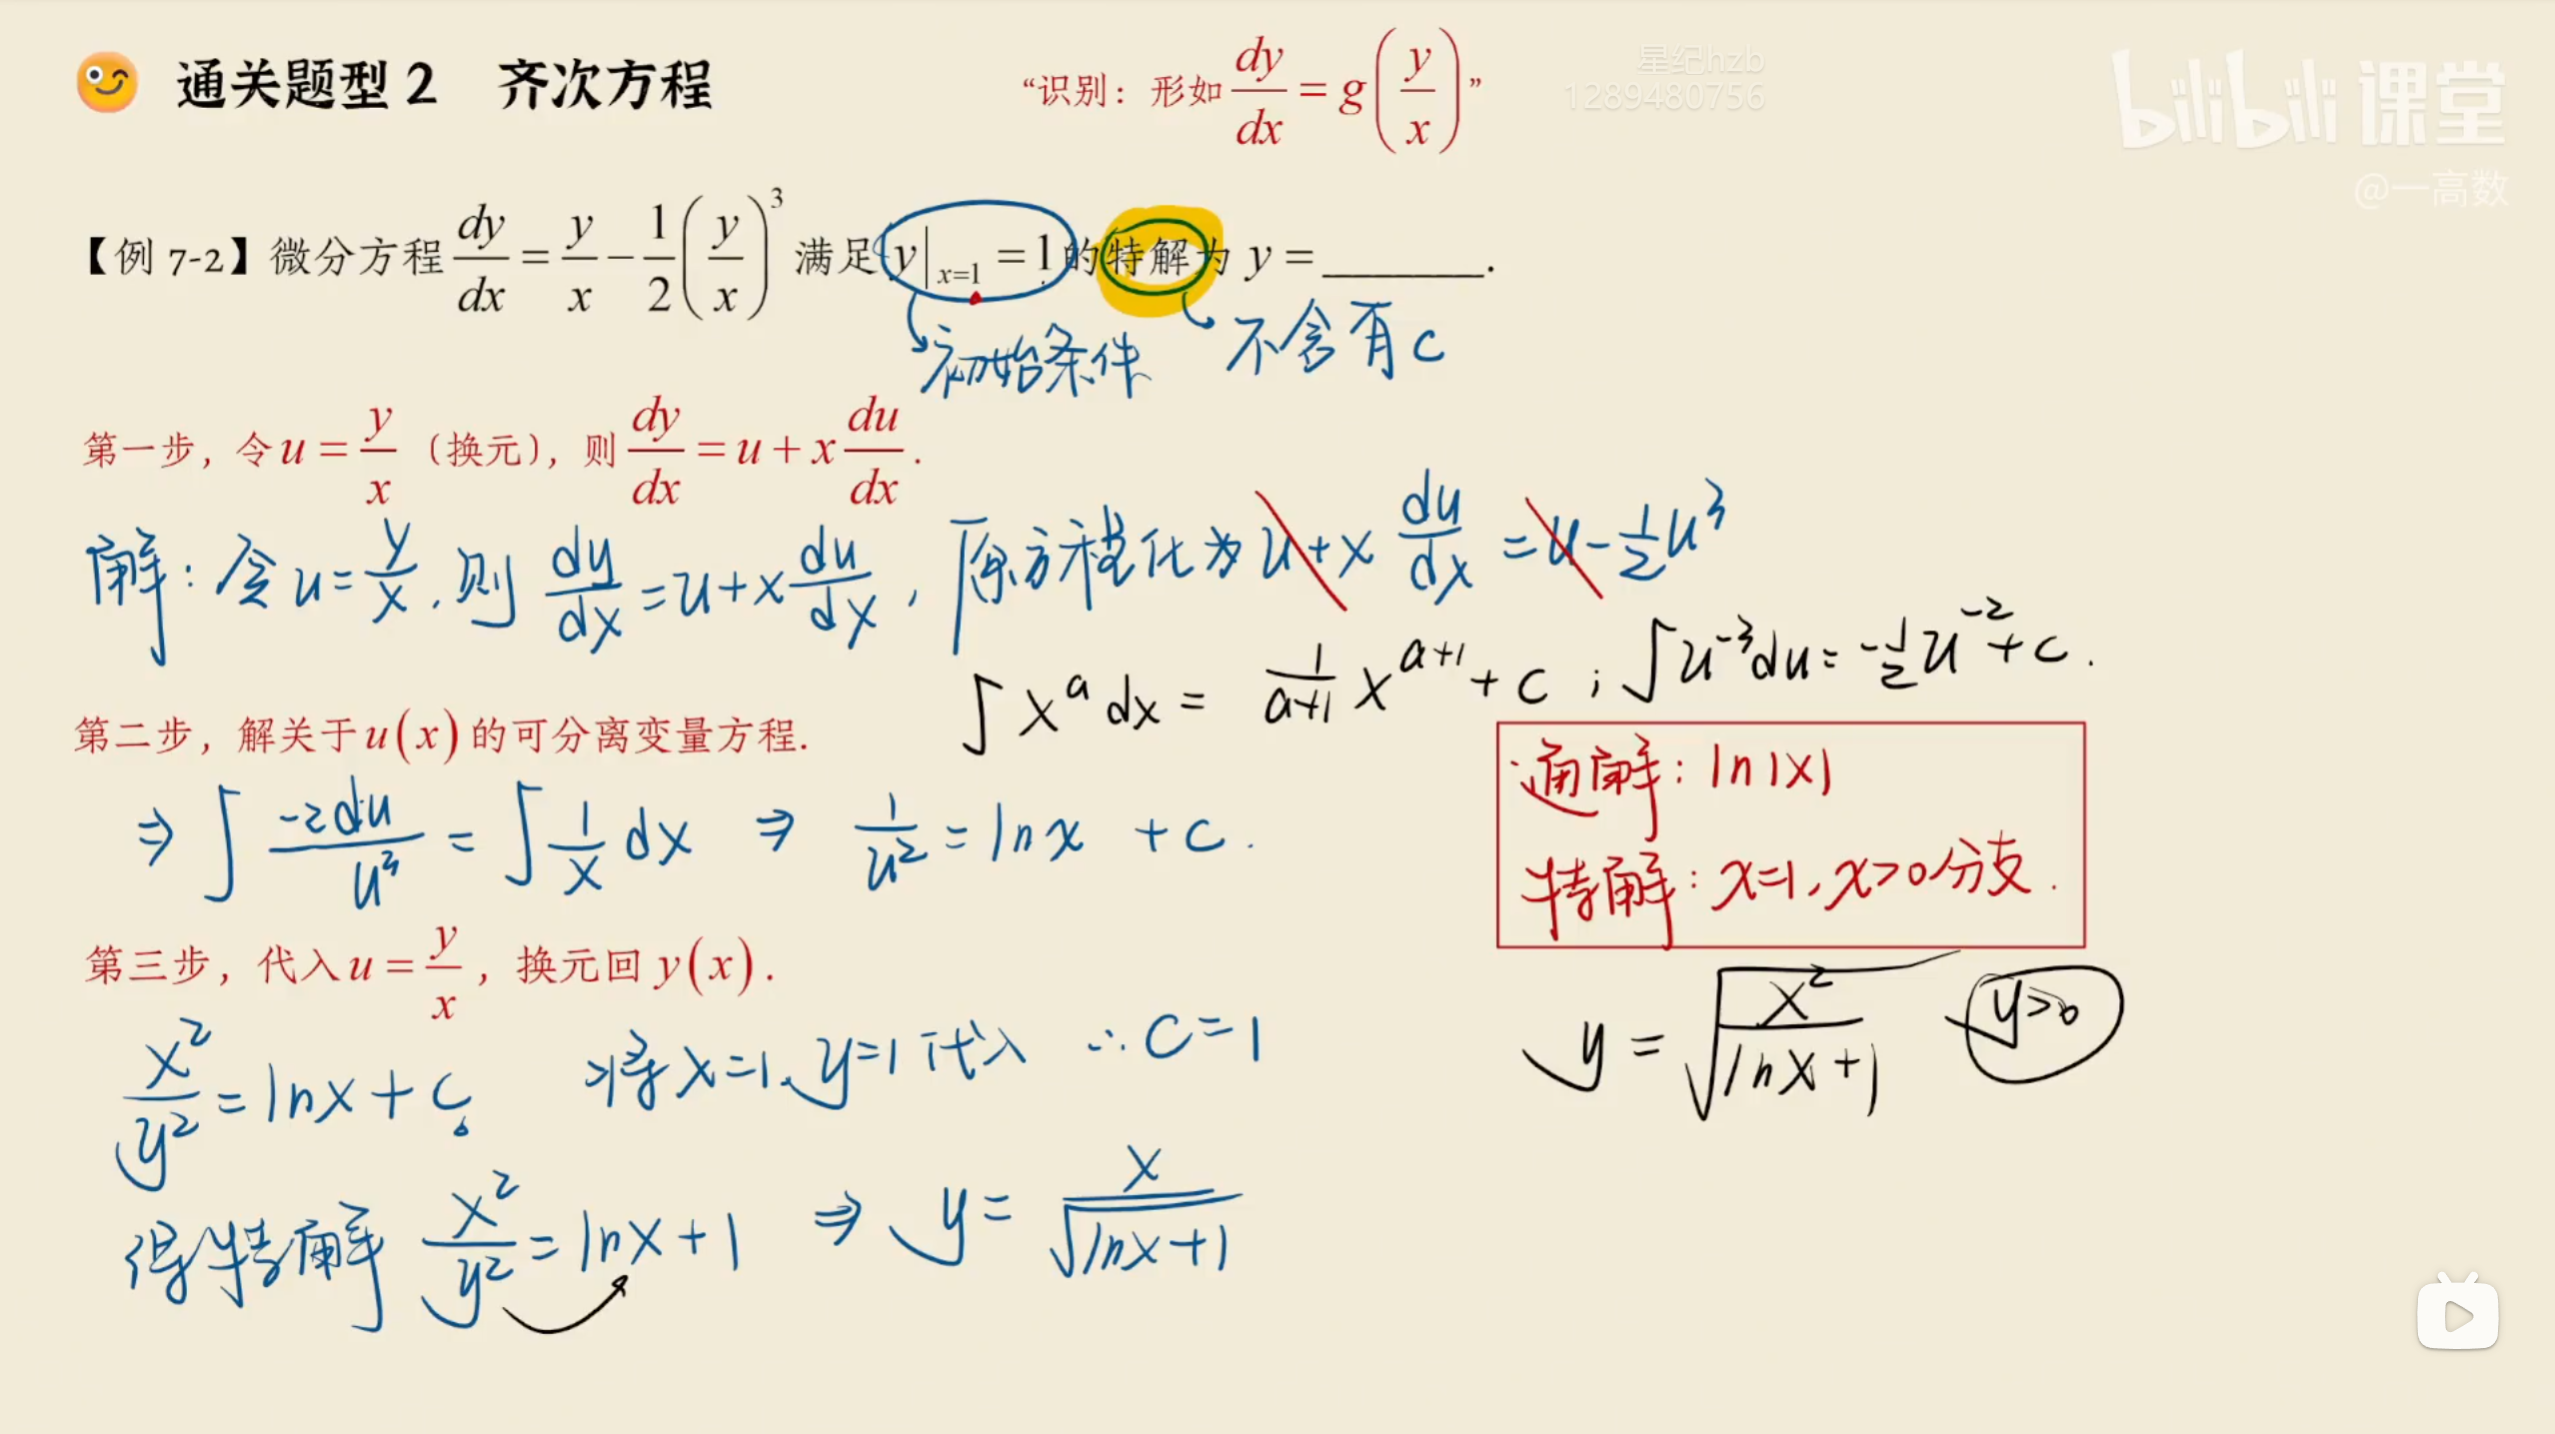 通关题型 2 齐次方程
“识别：形如 dy/dx = g(y/x)”
星纪hzb
1289480756
bilibili 课堂
@一高数
【例 7-2】微分方程 dy/dx = y/x − 1/2 (y/x)³ 满足 y|x=1 = 1 的特解为 y = ________.
初始条件
不含有 c
第一步，令 u = y/x （换元），则 dy/dx = u + x du/dx .
解：令 u = y/x . 则 dy/dx = u + x du/dx ， 原方程化为 u + x du/dx = u − 1/2 u³
∫ x^a dx = 1/(a+1) x^(a+1) + c ; ∫ u^-3 du = -1/2 u^-2 + c .
第二步，解关于 u(x) 的可分离变量方程.
⇒ ∫ -2du/u³ = ∫ 1/x dx ⇒ 1/u² = ln x + c .
通解：ln|x|
特解：x=1, x>0分支 .
第三步，代入 u = y/x ，换元回 y(x) .
x²/y² = ln x + c 将 x=1、y=1 代入 ∴ c = 1
y = √(x²/(ln x + 1)) y>0
得特解 x²/y² = ln x + 1 ⇒ y = x/√(ln x + 1)